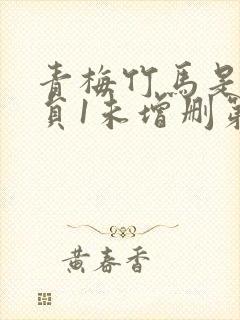 青梅竹马是
贞1未增删第
黄春香